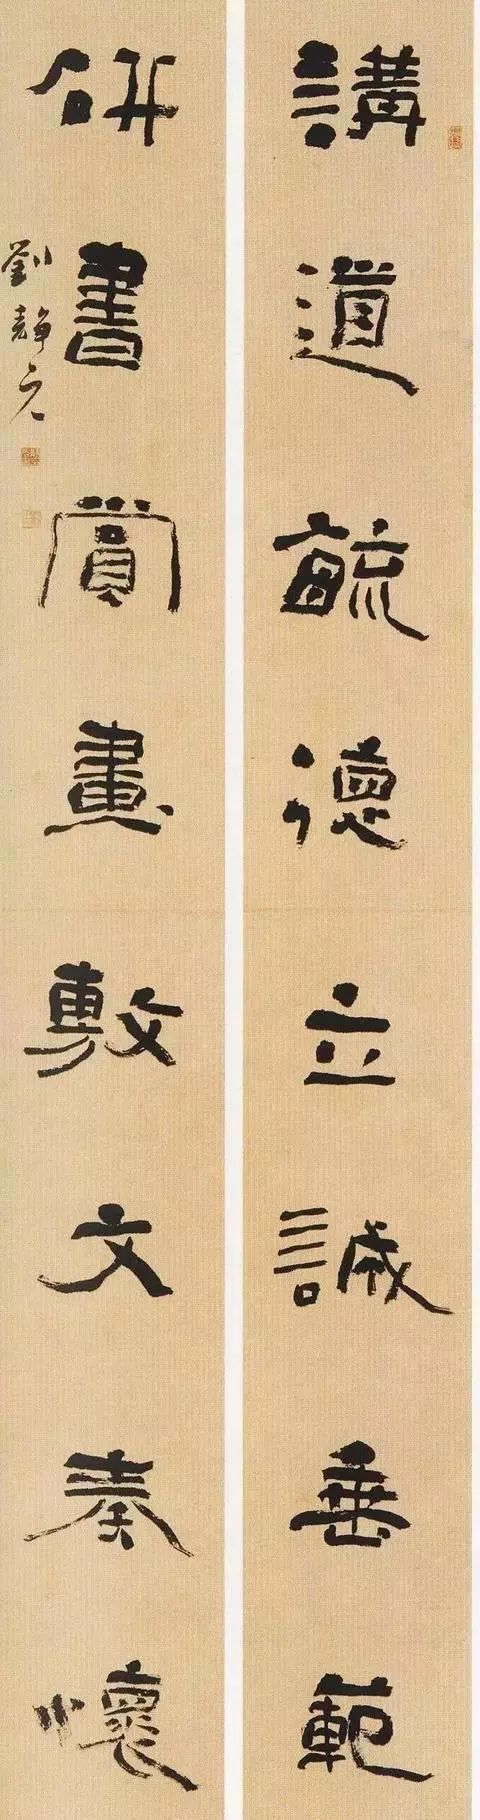 講道毓德立誠垂範
研書賞畫敷文奏懷
劉靜元